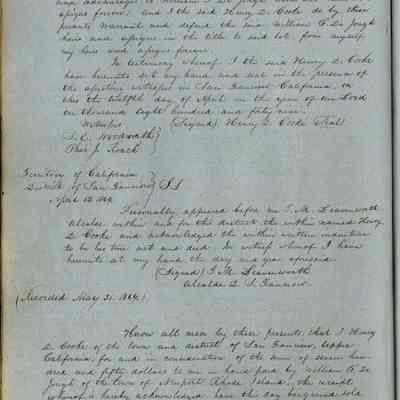 and advantages to William P. De Jongh
assigns forever. And I the said Henry D. Cooke do by these
presents warrant and defend the said William P. De Jongh
heirs and assigns in the title to said lot from myself
my heirs and assigns forever.
In testimony whereof I the said Henry D. Cooke
have hereunto set my hand and seal in the presence of
the attesting witnesses in San Francisco California, on
this the twelfth day of April in the year of our Lord
one thousand eight hundred and forty nine.
Witnesses (Signed) Henry D. Cooke (Seal)
S. C. Woodworth
Thos J. Roach
Territory of California
District of San Francisco SS
April 12. 1849.
Personally appeared before me T. M. Leavenworth
Alcalde within and for this district the within named Henry
D. Cooke and acknowledged the within written indenture
to be his true act and deed. In witness whereof I have
hereunto set my hand the day and year aforesaid.
(Signed) T. M. Leavenworth
Alcalde D. S. Francisco.
(Recorded May 31. 1849.)
Know all men by these presents, that I Henry
D. Cooke of the town and district of San Francisco, Upper
California, for and in consideration of the sum of seven hun-
dred and fifty dollars to me in hand paid by William P. De
Jongh of the town of Newport Rhode Island, the receipt
whereof is hereby acknowledged, have this day bargained sold